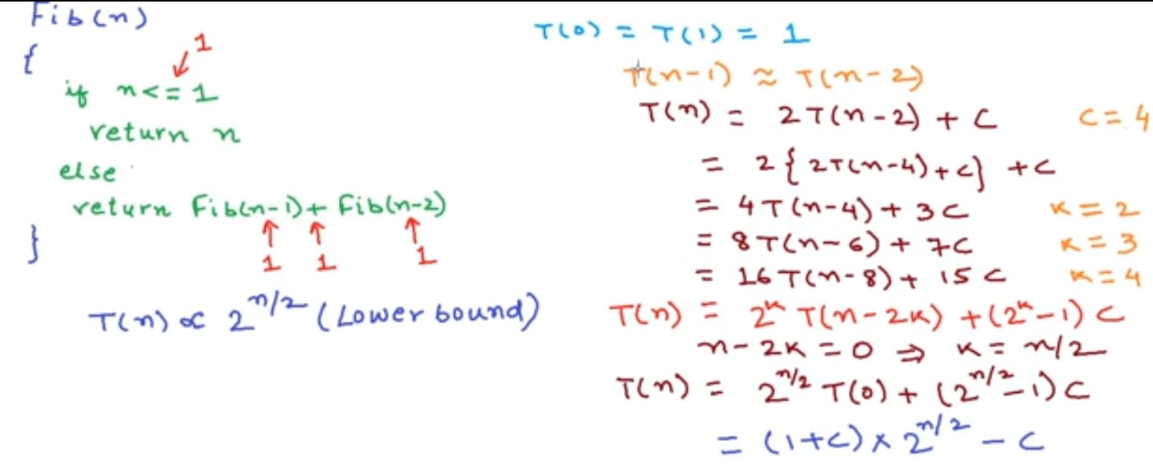 Fib(n)
{
1
if n<=1
return n
else
return Fib(n-1)+ Fib(n-2)
1 1 1
}
T(n) ∝ 2^n/2 (Lower bound)
T(0) = T(1) = 1
T(n-1) ≈ T(n-2)
T(n) = 2T(n-2) + C C=4
= 2{2T(n-4)+C} +C
= 4T(n-4)+ 3C K=2
= 8T(n-6)+ 7C K=3
= 16T(n-8)+ 15C K=4
T(n) = 2^K T(n-2K) +(2^K-1)C
n-2K=0 ⇒ K=n/2
T(n) = 2^n/2 T(0)+(2^n/2-1)C
= (1+C)×2^n/2 - C